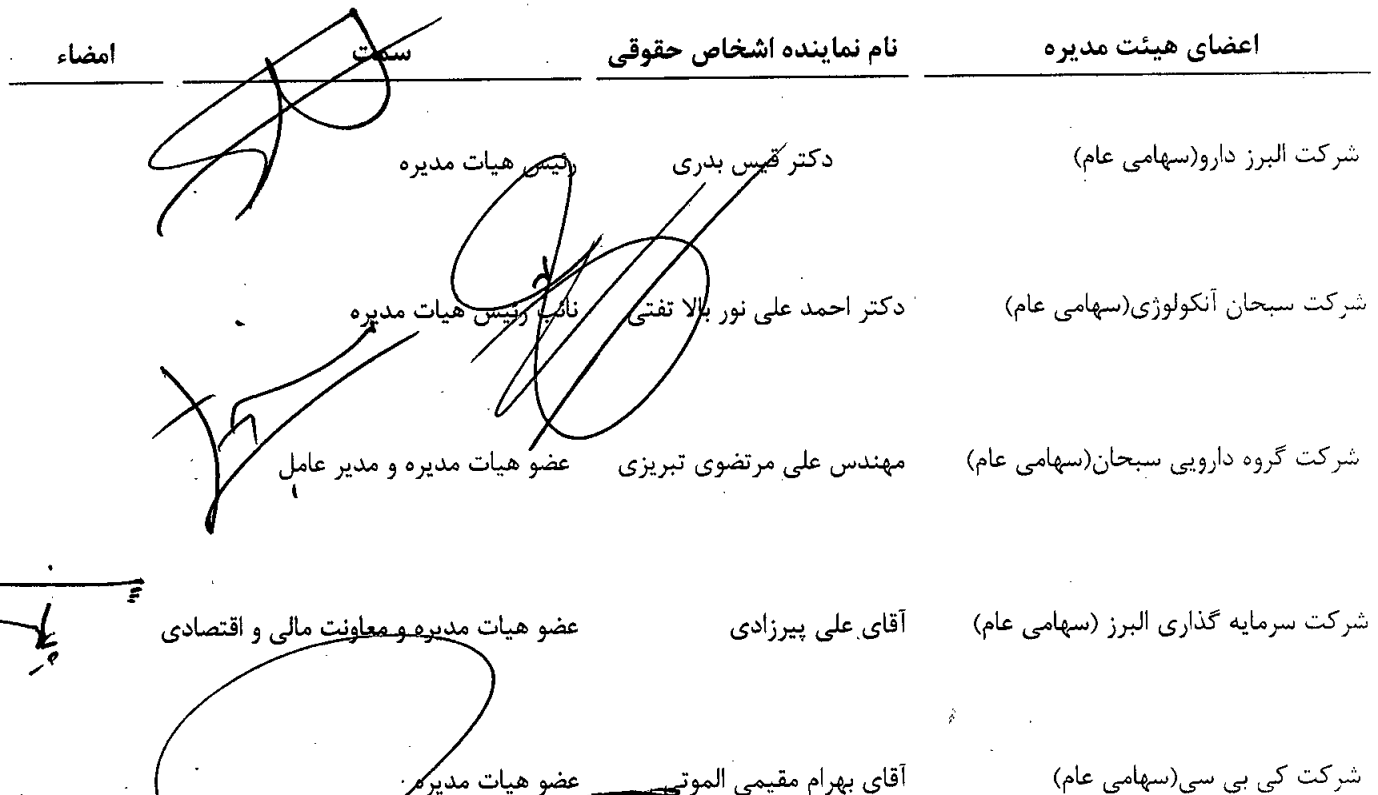 اعضای هیئت مدیره نام نماینده اشخاص حقوقی سمت امضاء
شرکت البرز دارو(سهامی عام) دکتر قیس بدری رئیس هیات مدیره
شرکت سبحان آنکولوژی(سهامی عام) دکتر احمد علی نور بالا تفتی نائب رئیس هیات مدیره
شرکت گروه دارویی سبحان(سهامی عام) مهندس علی مرتضوی تبریزی عضو هیات مدیره و مدیر عامل
شرکت سرمایه گذاری البرز (سهامی عام) آقای علی پیرزادی عضو هیات مدیره و معاونت مالی و اقتصادی
شرکت کی بی سی(سهامی عام) آقای بهرام مقیمی الموتی عضو هیات مدیره